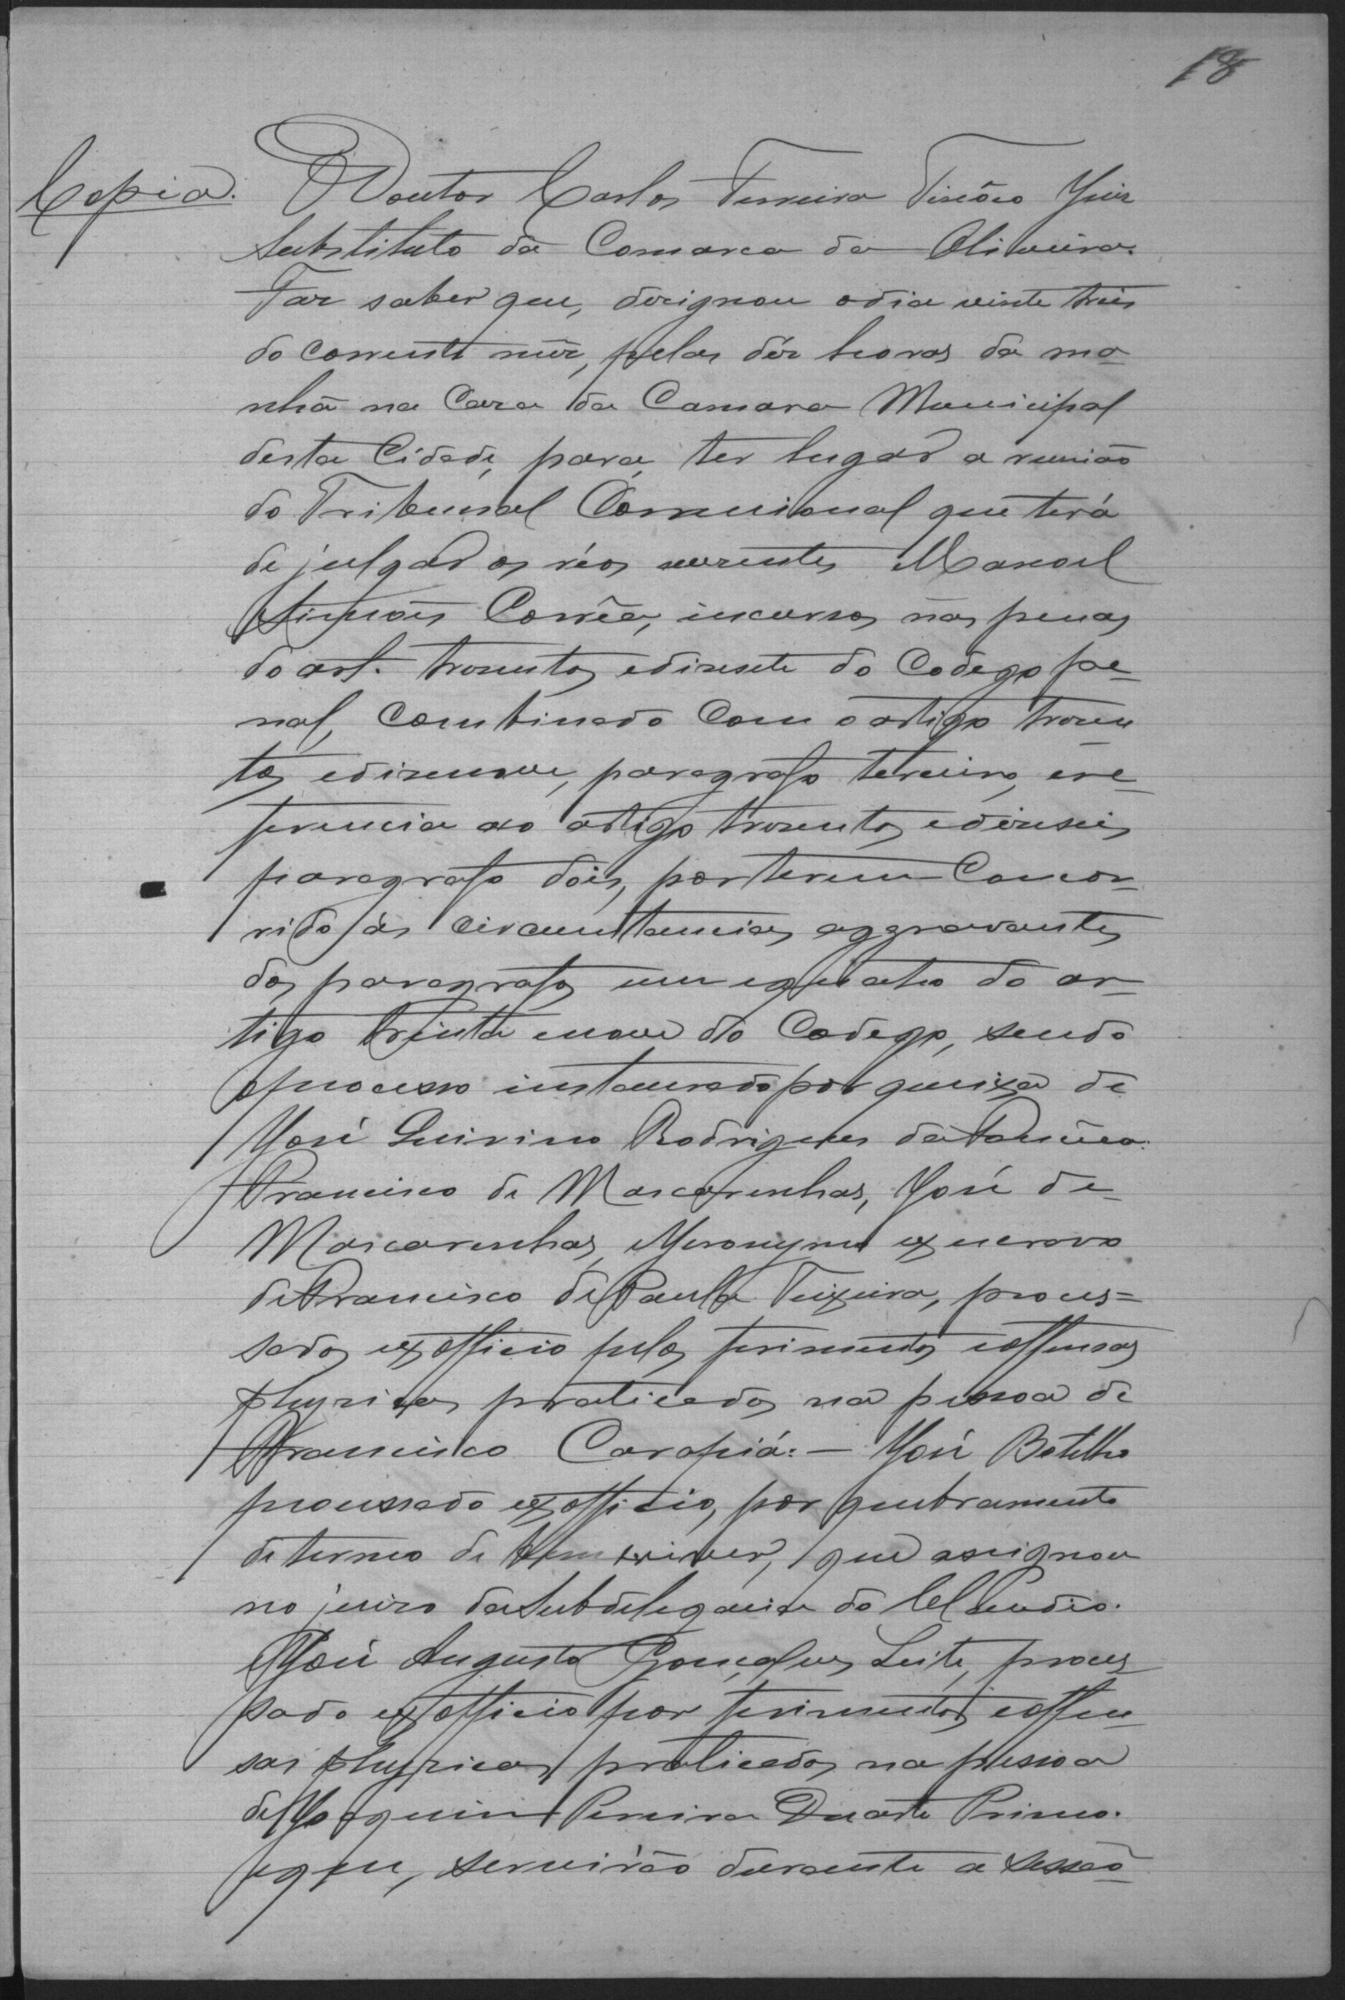 18
Copia. O Doutor Carlos Ferreira Tinôco Juiz
Substituto da Comarca da Oliveira.
Faz saber que, designou o dia vinte tres
do corrente mêz, pelas déz horas da ma-
nhã na Caza da Camara Municipal
desta Cidade, para ter lugar a reunião
do Tribunal Correcional que terá
de julgar os réos auzentes Manoel
Simões Corrêa, incursos nas penas
do art. trezentos e dizesete do Codego pe-
nal, combinado com o artigo trezen
tos e dizenove, paragrafo terceiro, e re-
ferencia ao artigo trezentos e dizeseis
paragrafo dois, por terem concor-
rido ás circunstancias aggravantes
dos paragrafos um e quatro do ar-
tigo trinta e nove do Codego, sendo
o processo instaurado por queixa de
José Quirino Rodrigues da
Francisco de Mascarenhas, José de
Mascarenhas, Jeronymo ex escravo
de Francisco de Paula Teixeira, proces=
sados ex officio pelos ferimentos e offensas
physicas praticados na pessoa de
Francisco Carapiá:- José Botelho
processado ex officio, por quebramento
de termo de bem viver, que assignou
no juizo da Subdelegacia do Claudio.
José Augusto Gonçalves Leite, proces
sado ex officio por ferimentos e offen
sas physicas praticados na pessoa
de Joaquim Pereira Duarte Primo.
e que, servirão durante a sessão